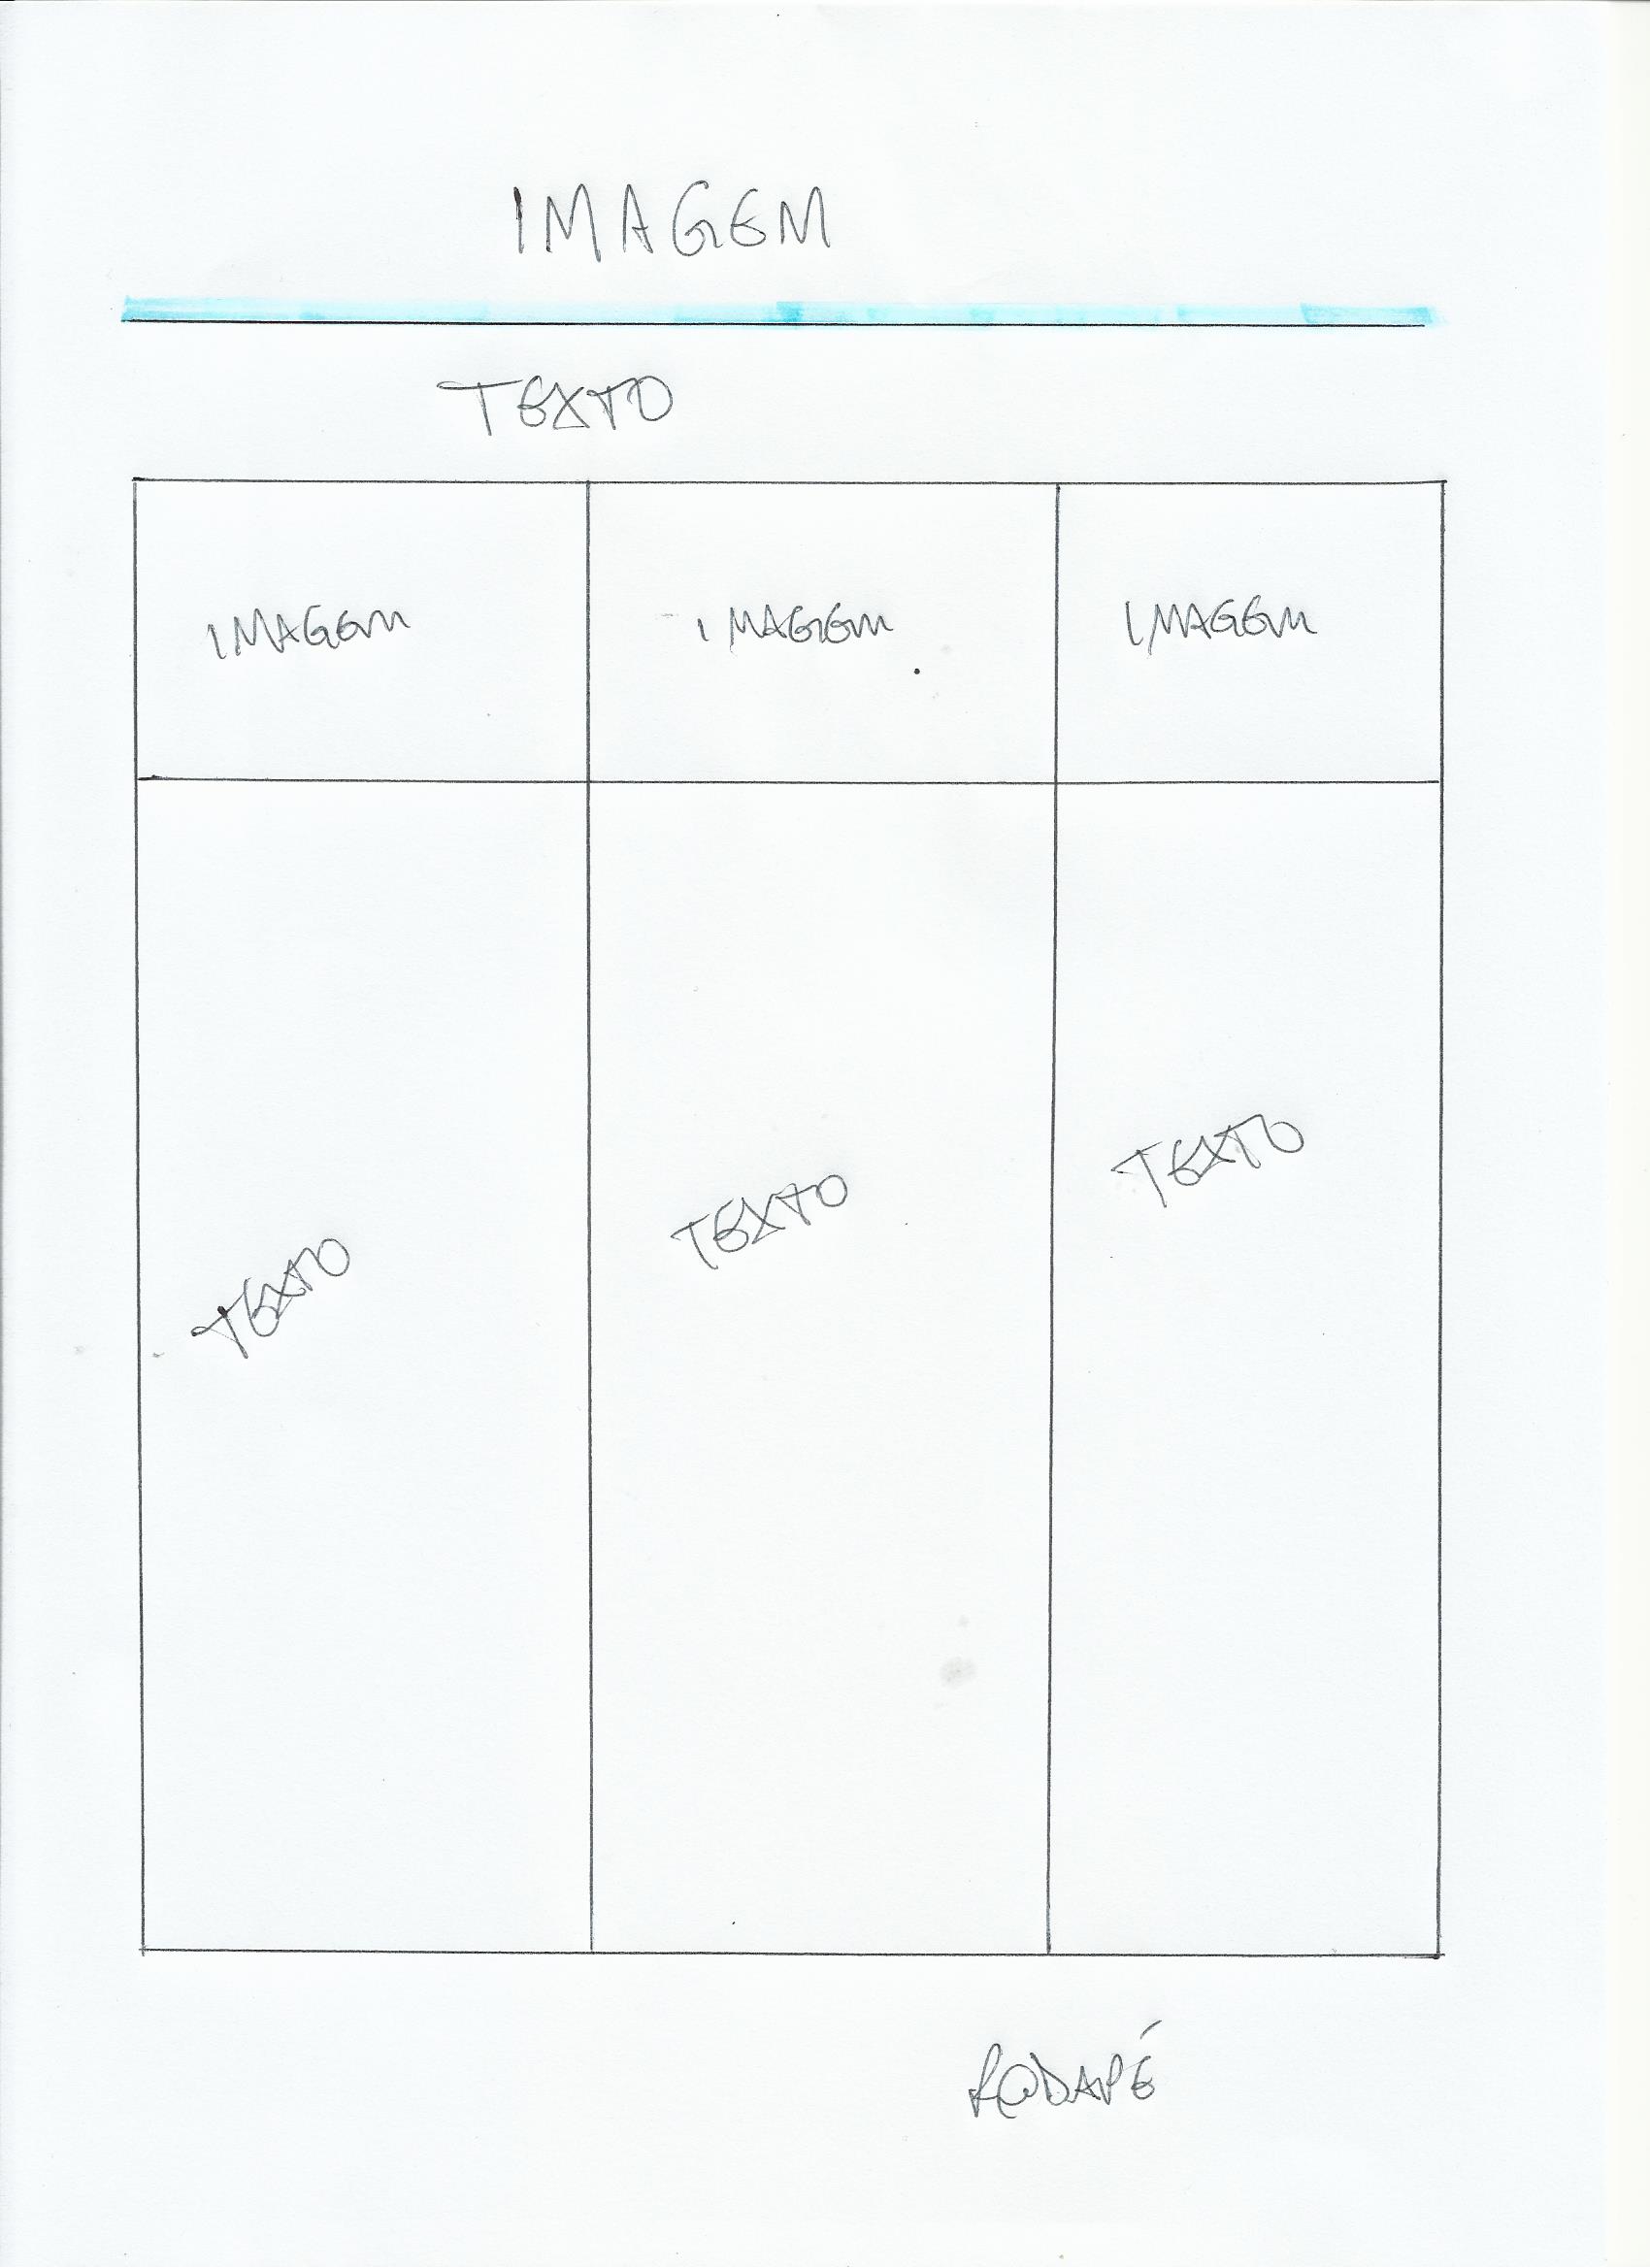 IMAGEM
TEXTO
IMAGEM IMAGEM IMAGEM
TEXTO TEXTO TEXTO
RODAPÉ